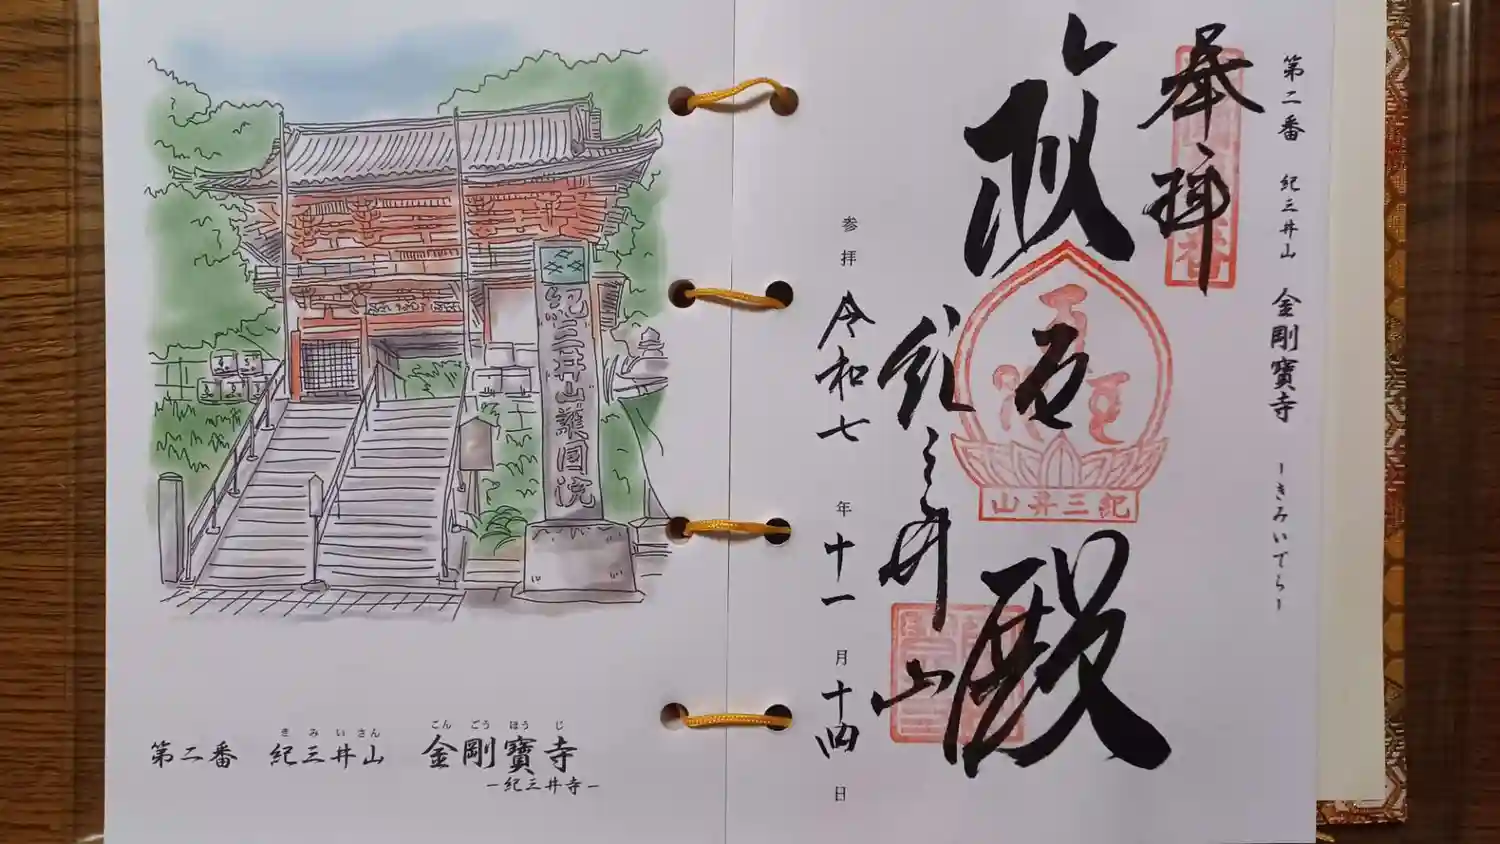 第二番　紀三井山　金剛寶寺　－きみいでら－
奉拝
救世殿
紀三井山
紀三井山
参拝　令和七年十一月十四日
紀三井山護國院
きみいさん　こんごうほうじ
第二番　紀三井山　金剛寶寺
－紀三井寺－